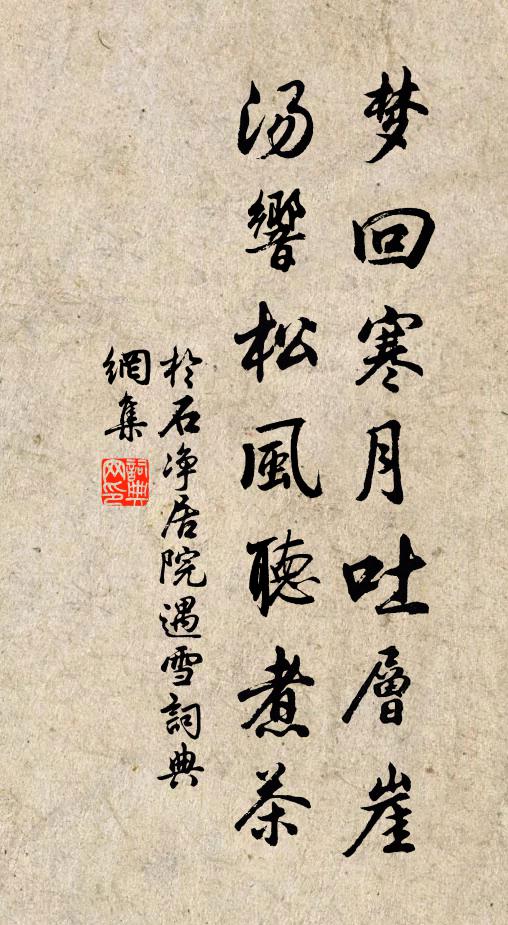 梦回寒月吐層崖
汤響松風聽煮茶
於石净居院遇雪詞典
網集
詞典
网印